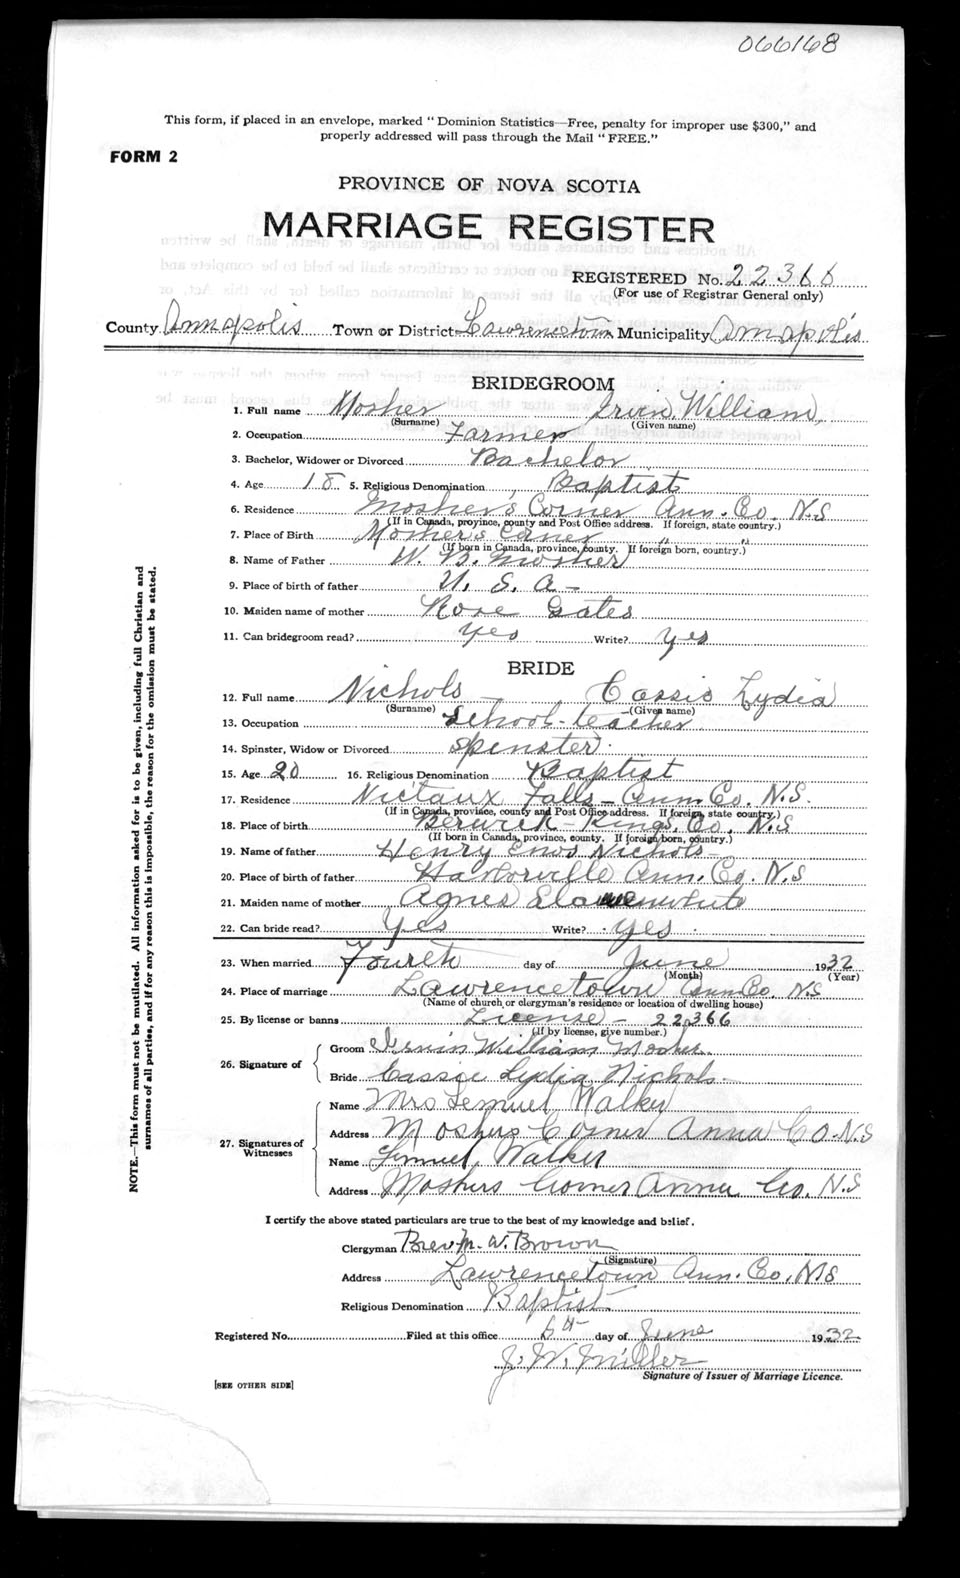 066168
This form, if placed in an envelope, marked “Dominion Statistics—Free, penalty for improper use $300,” and
properly addressed will pass through the Mail “FREE.”
FORM 2
PROVINCE OF NOVA SCOTIA
MARRIAGE REGISTER
REGISTERED No. 22366
(For use of Registrar General only)
County Annapolis Town or District Lawrencetown Municipality Annapolis
BRIDEGROOM
1. Full name Mosher Irvin William,
(Surname) (Given name)
2. Occupation Farmer
3. Bachelor, Widower or Divorced Bachelor
4. Age 18 5. Religious Denomination Baptist
6. Residence Mosher's Corner Ann. Co. N.S
(If in Canada, province, county and Post Office address. If foreign, state country.)
7. Place of Birth Mosher's Corner " "
(If born in Canada, province, county. If foreign born, country.)
8. Name of Father W. B. Mosher
9. Place of birth of father U. S. A -
10. Maiden name of mother Rose Gates
11. Can bridegroom read? Yes Write? Yes
BRIDE
12. Full name Nichols Cassie Lydia
(Surname) (Given name)
13. Occupation School-teacher
14. Spinster, Widow or Divorced Spinster.
15. Age 20 16. Religious Denomination Baptist
17. Residence Nictaux Falls - Ann. Co. N.S.
(If in Canada, province, county and Post Office address. If foreign, state country.)
18. Place of birth Berwick - Kings. Co. N.S
(If born in Canada, province, county. If foreign born, country.)
19. Name of father Henry Enos Nichols
20. Place of birth of father Ann. Co. N.S
21. Maiden name of mother Agnes
22. Can bride read? Yes Write? Yes
23. When married Fourth day of June 1932
(Month) (Year)
24. Place of marriage Lawrencetown Ann Co. N.S
(Name of church or clergyman's residence or location of dwelling house)
25. By license or banns License - 22366
(If by license, give number.)
26. Signature of Groom Irvin William Mosher
Bride Cassie Lydia Nichols
27. Signatures of Witnesses Name Mrs Lemuel Walker
Address Moshers Corner Anna Co. N.S
Name Lemuel Walker
Address Moshers Corner Anna Co. N.S
I certify the above stated particulars are true to the best of my knowledge and belief.
Clergyman Rev M. W. Brown
(Signature)
Address Lawrencetown Ann. Co. N.S
Religious Denomination Baptist
Registered No. Filed at this office 6th day of June 1932
J. W. Miller
Signature of Issuer of Marriage Licence.
[SEE OTHER SIDE]
NOTE.—This form must not be mutilated. All information asked for is to be given, including full Christian and
surnames of all parties, and if for any reason this is impossible, the reason for the omission must be stated.